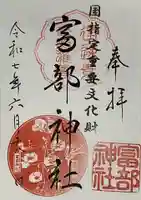 奉拝
国指定重要文化財
富部神社
令和七年六月
富部
神社